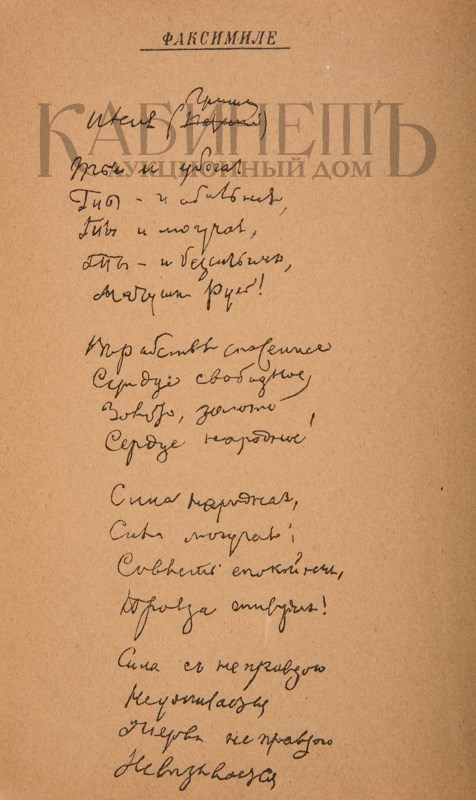 ФАКСИМИЛЕ
КАБИНЕТЪ
АУКЦИОННЫЙ ДОМ
Гриша
Ты и убогая
Ты – и обильная,
Ты и могучая,
Ты – и безсильная,
Матушка Русь!
Въ рабстве спасенное
Сердце свободное,
Золото, золото
Сердце народное!
Сила народная,
Сила могучая!
Совесть спокойная,
Правда живучая!
Сила съ неправдою
Не уживается
Жертва неправдою
Не вызывается